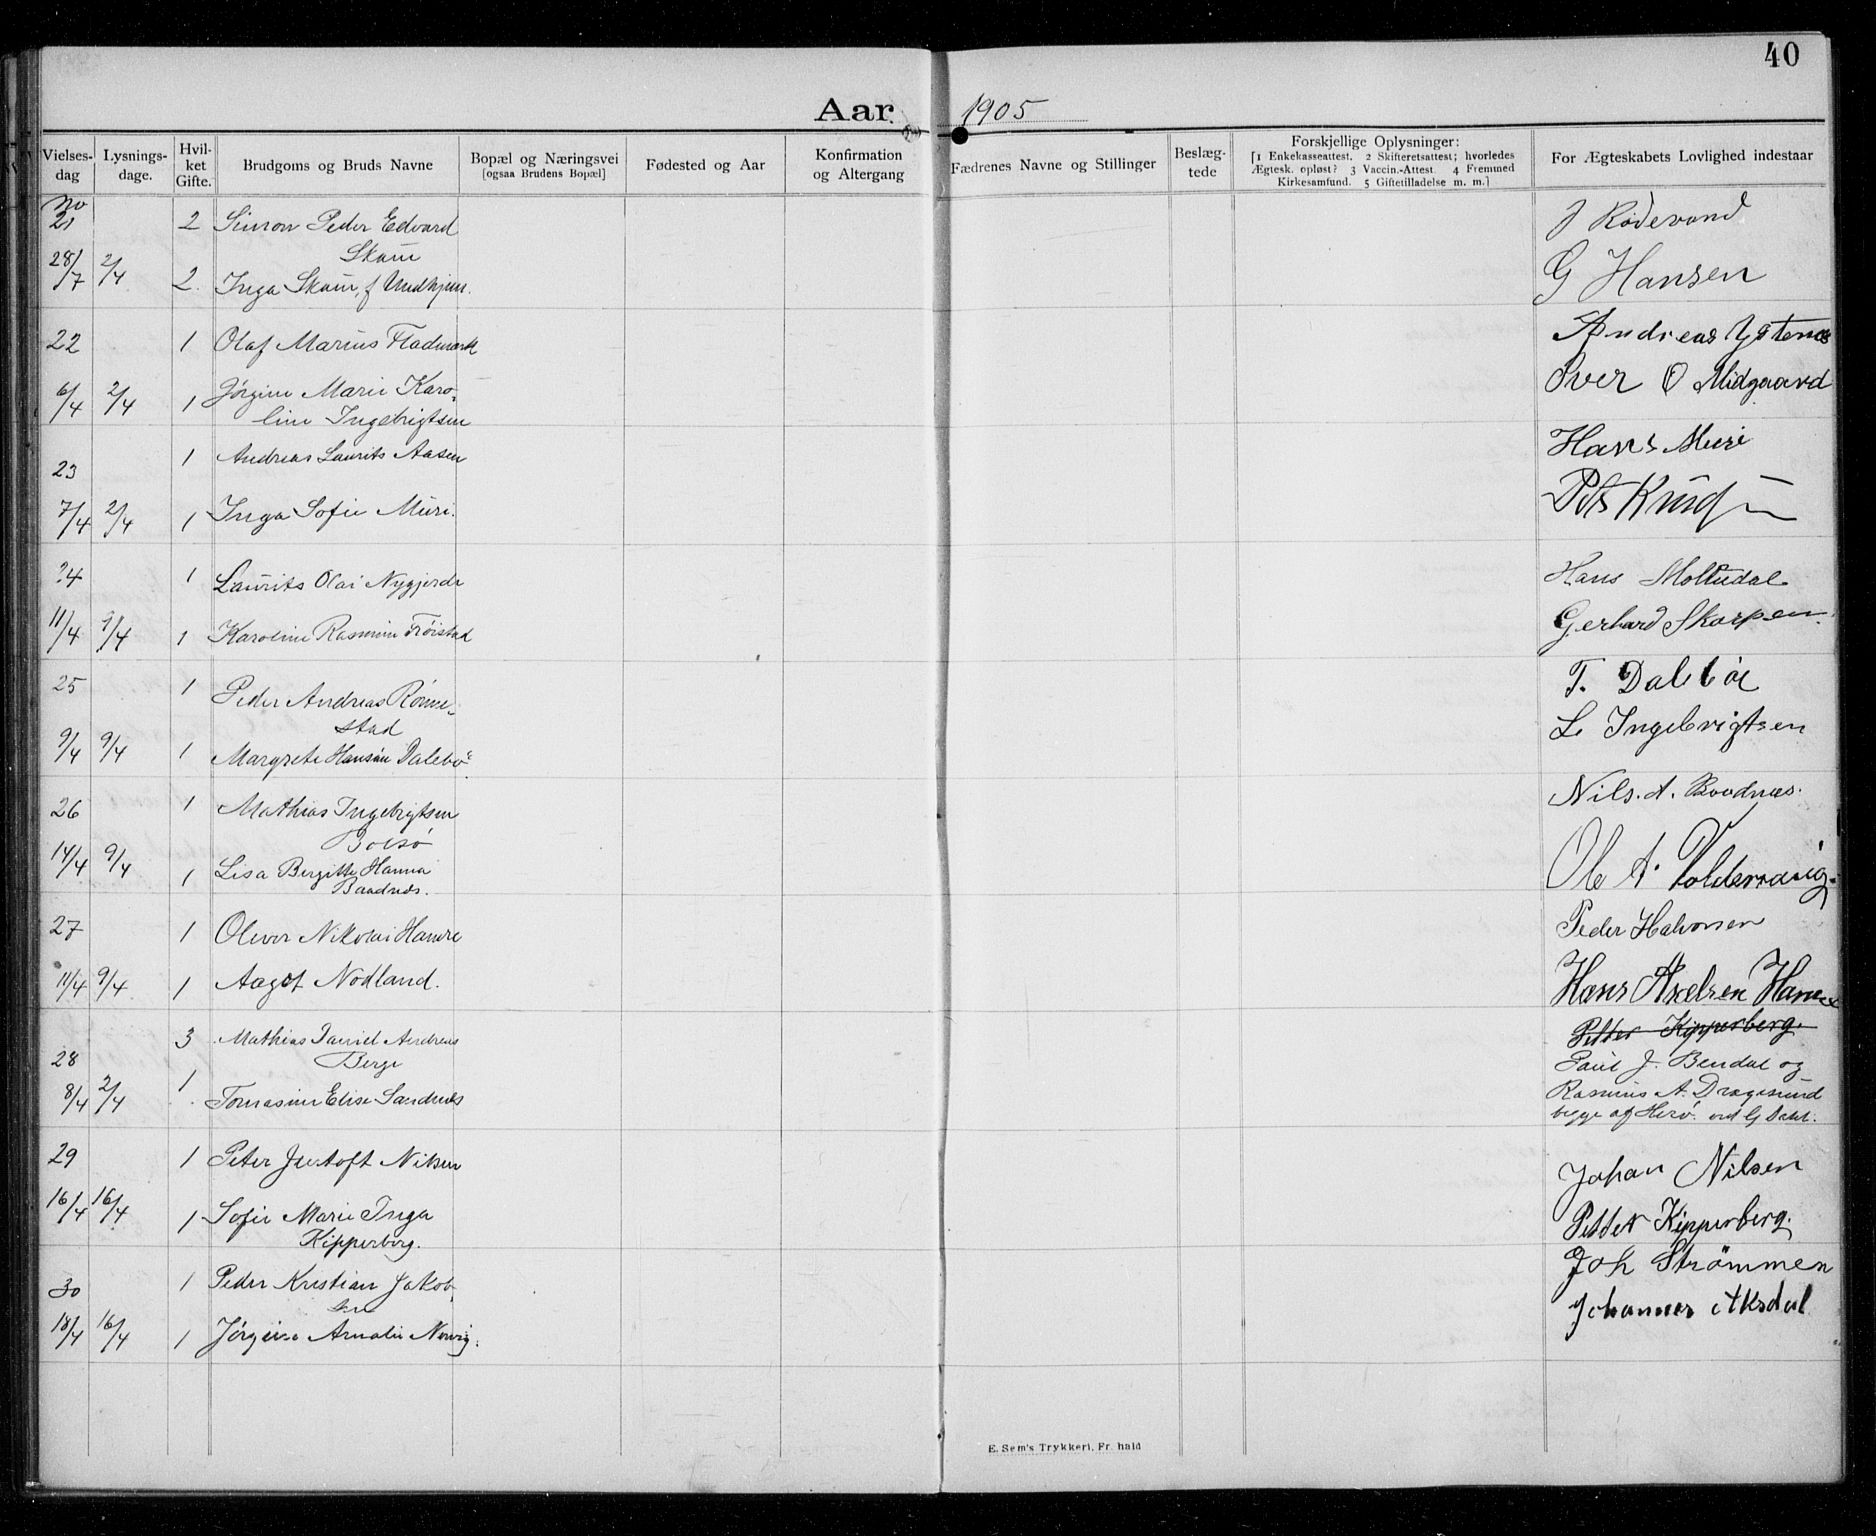 40
Aar 1905
Vielses-
dag
Lysnings-
dage.
Hvil-
ket
Gifte.
Brudgoms og Bruds Navne
Bopæl og Næringsvei
[ogsaa Brudens Bopæl]
Fødested og Aar
Konfirmation
og Altergang
Fædrenes Navne og Stillinger
Beslæg-
tede
Forskjellige Oplysninger:
[1 Enkekasseattest. 2 Skifteretsattest; hvorledes
Ægtesk. opløst? 3 Vaccin.-Attest. 4 Fremmed
Kirkesamfund. 5 Giftetilladelse m. m.]
For Ægteskabets Lovlighed indestaar
No
21 2 Simon Peder Edvard J Rødevand
Skaue
28/7 2/4 2. Inga Skaue, f G Hansen
22 1 Olaf Marius Fladmark Andreas Ystenes
6/4 2/4 1 Jørgine Marie Karo- Iver O Midgaard
line Ingebrigtsen
23 1 Andreas Laurits Aasen Hans Muri
7/4 2/4 1 Inga Sofie Muri.
24 1 Laurits Olai Nygjerde Hans Moltudal
11/4 9/4 1 Karoline Rasmine Frøistad Gerhard Skorpen
25 1 Peder Andreas Rønne- T. Dalebøe
stad
9/4 9/4 1 Margrete Hansine Dalebø L Ingebrigtsen
26 1 Mathias Ingebrigtsen Nils. A. Baadnæs.
Bolsø
14/4 9/4 1 Lisa Bergitte Hanna Ole A. Voldervaag
Baadnæs.
27 1 Oliver Nikolai Hamre Peder Halvorsen
11/4 9/4 1 Aagot Nodland. Hans Axelsen
3 Mathias Daniel Andreas Petter Kipperberg.
28 Berge Paul J. Bendal og
8/4 2/4 1 Tomasine Elise Sandnæs Rasmus A. Dragesund
begge af Herø.
29 1 Peter Justoft Nilsen Johan Nilsen
16/4 16/4 1 Sofie Marie Inga Petter Kipperberg.
Kipperberg.
30 1 Peder Kristian Jakob- Joh Strømmen
sen
18/4 16/4 1 Jørgine Amalie Nervig. Johannes Aksdal
E. Sem's Trykkeri, Fr. hald